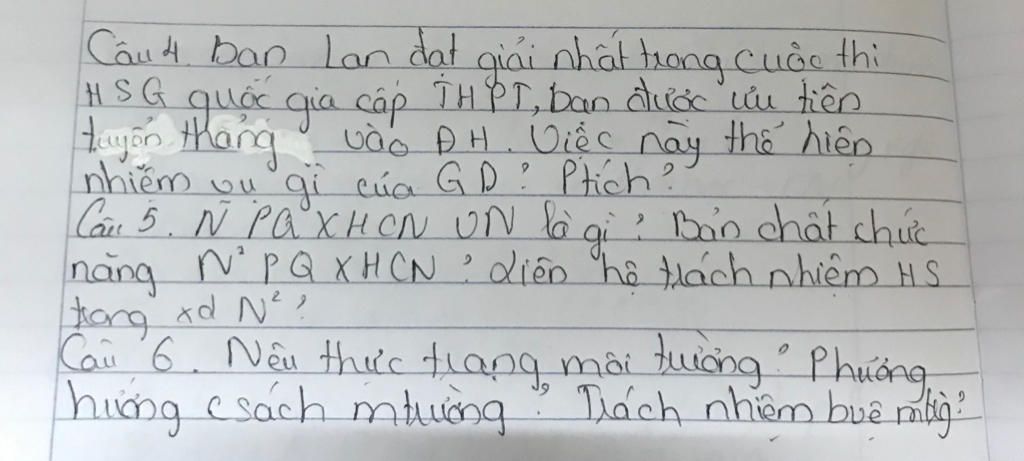 Câu 4. bạn Lan đạt giải nhất trong cuộc thi
HSG quốc gia cấp THPT, bạn được ưu tiên
tuyển thẳng vào ĐH. Việc này thể hiện
nhiệm vụ gì của GD? Ptích?
Câu 5. N² PQ XHCN VN là gì? Bản chất chức
năng N² PQ XHCN? diên hệ trách nhiệm HS
trong xd N²?
Câu 6. Nêu thực trạng môi trường? Phương
hướng csách mtrường? Trách nhiệm bvệ mtrg?